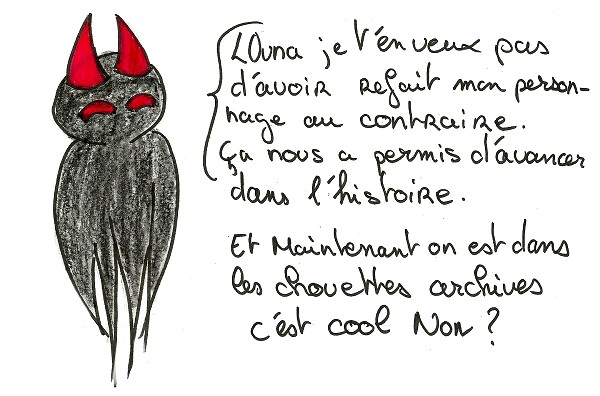 LOuna je t'en veux pas
d'avoir refait mon person-
nage au contraire.
Ça nous a permis d'avancer
dans l'histoire.
Et Maintenant on est dans
les chouettes archives
c'est cool Non ?